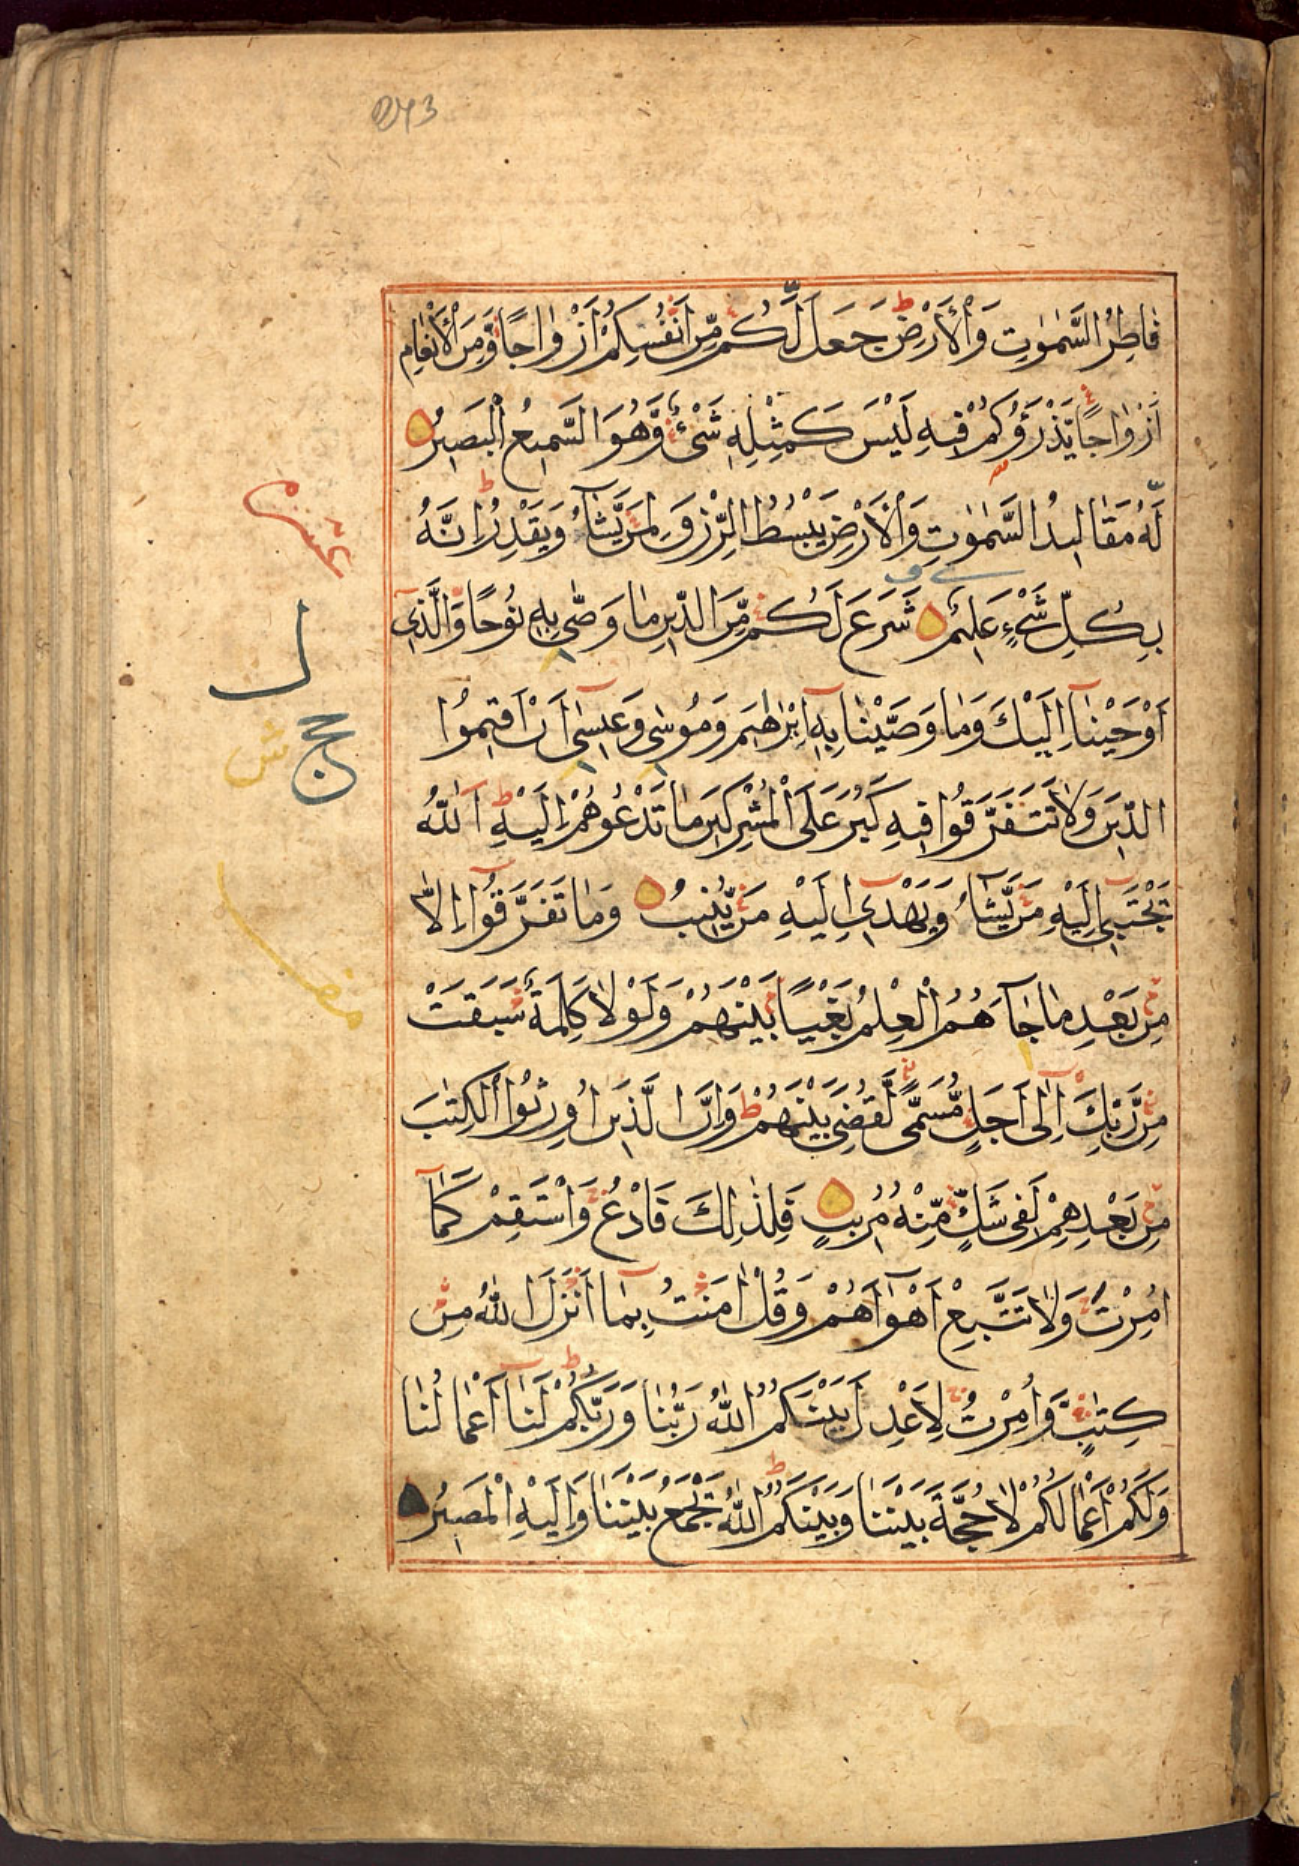 فَاطِرُ السَّمٰوٰتِ وَالْاَرْضِ ط جَعَلَ لَّكُمْ مِّنْ اَنْفُسِكُمْ اَزْوَاجًا وَّمِنَ الْاَنْعَامِ
اَزْوَاجًا يَّذْرَؤُكُمْ فِيهِ لَيْسَ كَمِثْلِهٖ شَىْءٌ وَّهُوَ السَّمِيعُ الْبَصِيرُ
لَهٗ مَقَالِيدُ السَّمٰوٰتِ وَالْاَرْضِ يَبْسُطُ الرِّزْقَ لِمَنْ يَّشَآءُ وَيَقْدِرُ ط اِنَّهٗ
بِكُلِّ شَىْءٍ عَلِيمٌ شَرَعَ لَكُمْ مِّنَ الدِّينِ مَا وَصّٰى بِهٖ نُوحًا وَّالَّذِىٓ
اَوْحَيْنَآ اِلَيْكَ وَمَا وَصَّيْنَا بِهٖٓ اِبْرٰهِيمَ وَمُوسٰى وَعِيسٰىٓ اَنْ اَقِيمُوا
الدِّينَ وَلَا تَتَفَرَّقُوا فِيهِ كَبُرَ عَلَى الْمُشْرِكِينَ مَا تَدْعُوهُمْ اِلَيْهِ ط اَللّٰهُ
يَجْتَبِىٓ اِلَيْهِ مَنْ يَّشَآءُ وَيَهْدِىٓ اِلَيْهِ مَنْ يُّنِيبُ وَمَا تَفَرَّقُوٓا اِلَّا
مِنْ بَعْدِ مَا جَآءَهُمُ الْعِلْمُ بَغْيًا بَيْنَهُمْ وَلَوْلَا كَلِمَةٌ سَبَقَتْ
مِنْ رَّبِّكَ اِلٰىٓ اَجَلٍ مُّسَمًّى لَّقُضِىَ بَيْنَهُمْ ط وَاِنَّ الَّذِينَ اُورِثُوا الْكِتٰبَ
مِنْ بَعْدِهِمْ لَفِى شَكٍّ مِّنْهُ مُرِيبٍ فَلِذٰلِكَ فَادْعُ وَاسْتَقِمْ كَمَآ
اُمِرْتَ وَلَا تَتَّبِعْ اَهْوَآءَهُمْ وَقُلْ اٰمَنْتُ بِمَآ اَنْزَلَ اللّٰهُ مِنْ
كِتٰبٍ وَّاُمِرْتُ لِاَعْدِلَ بَيْنَكُمُ اللّٰهُ رَبُّنَا وَرَبُّكُمْ ط لَنَآ اَعْمَالُنَا
وَلَكُمْ اَعْمَالُكُمْ لَا حُجَّةَ بَيْنَنَا وَبَيْنَكُمُ ط اللّٰهُ يَجْمَعُ بَيْنَنَا وَاِلَيْهِ الْمَصِيرُ
ل
ج
ش